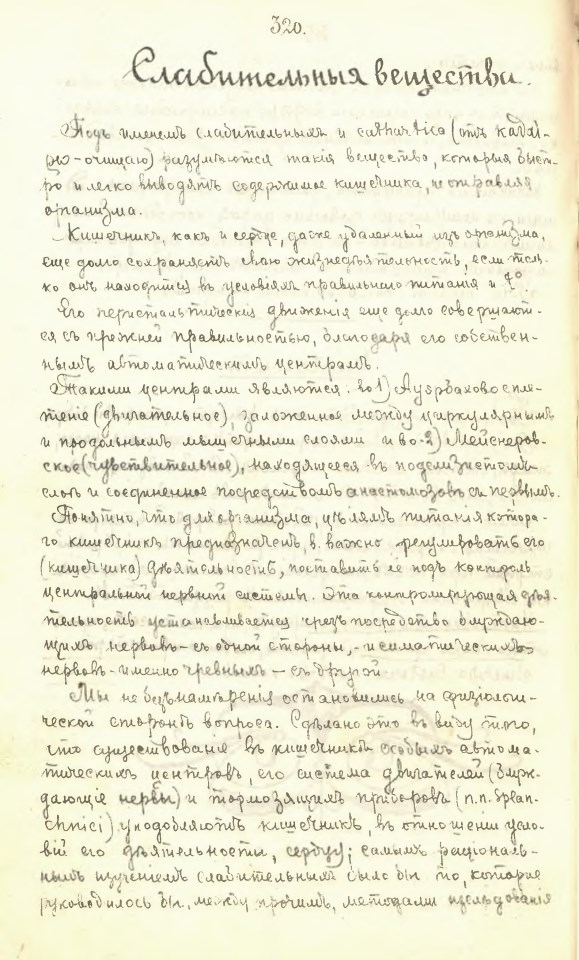 320.
Слабительныя вещества.
Подъ именемъ слабительныхъ и cathartica (отъ καθαί-
ρω - очищаю) разумѣются такія вещества, которыя быст-
ро и легко выводятъ содержимое кишечника, не отравляя
организма.
Кишечникъ, какъ и сердце, даже удаленный изъ организма,
еще долго сохраняетъ свою жизнедѣятельность, если толь-
ко онъ находится въ условіяхъ правильнаго питанія и t°.
Его перистальтическія движенія еще долго совершают-
ся съ прежней правильностью, благодаря его собствен-
нымъ автоматическимъ центрамъ.
Такими центрами являются: во 1) Ауэрбахово спле-
теніе (двигательное), заложенное между циркулярнымъ
и продольнымъ мышечными слоями и во-2) Мейснеров-
ское (чувствительное), находящееся въ подслизистомъ
слоѣ и соединенное посредствомъ анастомозовъ съ первымъ.
Понятно, что для организма, цѣлямъ питанія котора-
го кишечникъ предназначенъ, в. важно регулировать его
(кишечника) дѣятельность, поставить ее подъ контроль
центральной нервной системы. Эта контролирующая дѣя-
тельность устанавливается чрезъ посредство блуждаю-
щихъ нервовъ - съ одной стороны, - и симпатическихъ
нервовъ - именно чревныхъ - съ другой
Мы не безъ намѣренія остановились на физіологи-
ческой сторонѣ вопроса. Сдѣлано это въ виду того,
что существованіе въ кишечникѣ особыхъ автома-
тическихъ центровъ, его система двигателей (блуж-
дающіе нервы) и тормозящихъ приборовъ (n.n. Splan-
chnici) уподобляютъ кишечникъ, въ отношеніи усло-
вій его дѣятельности, сердцу; самымъ раціональ-
нымъ изученіемъ слабительныхъ было бы то, которое
руководилось бы, между прочимъ, методами изслѣдованія